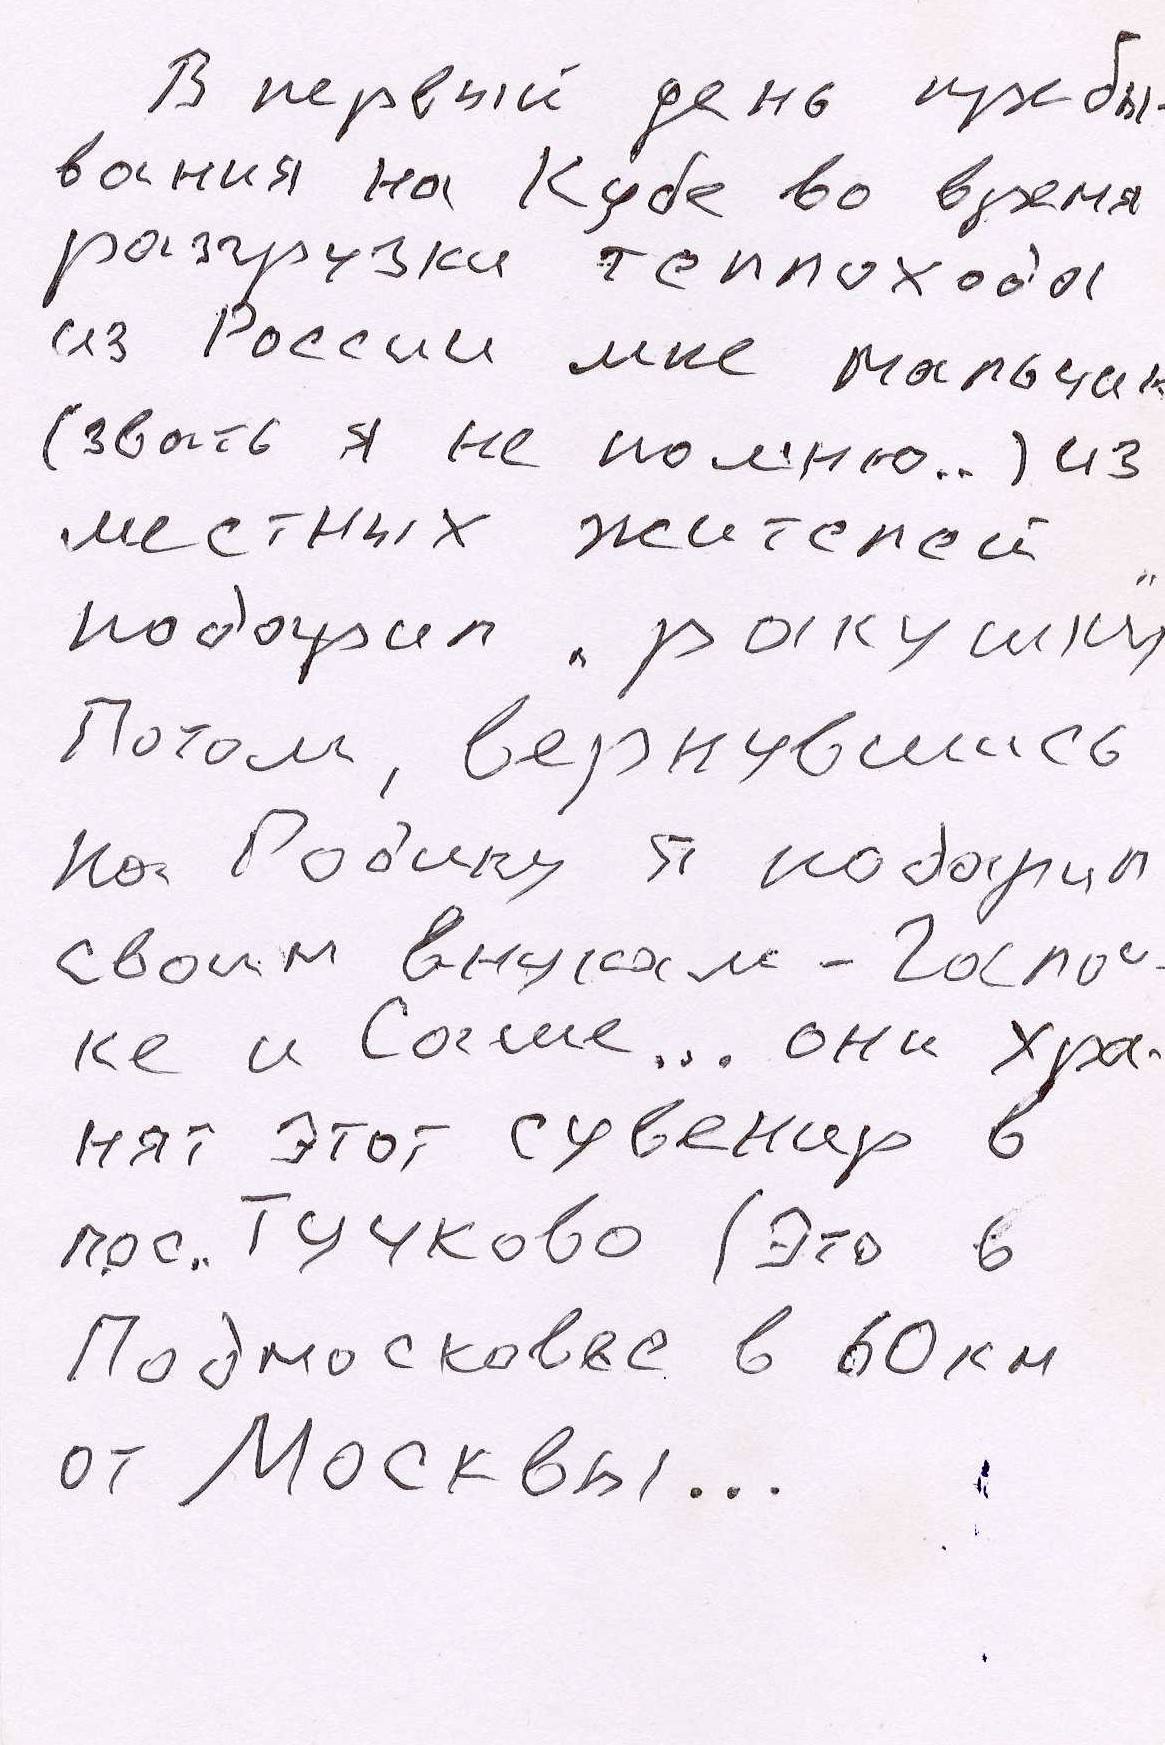 В первый день пребы-
вания на Кубе во время
разгрузки теплохода
из России мне мальчик
(звать я не помню..) из
местных жителей
подарил „ракушку"
Потом, вернувшись
на Родину я подарил
своим внукам - Галоч-
ке и Саше... они хра-
нят этот сувенир в
пос. Тучково (Это в
Подмосковье в 60 км
от Москвы...